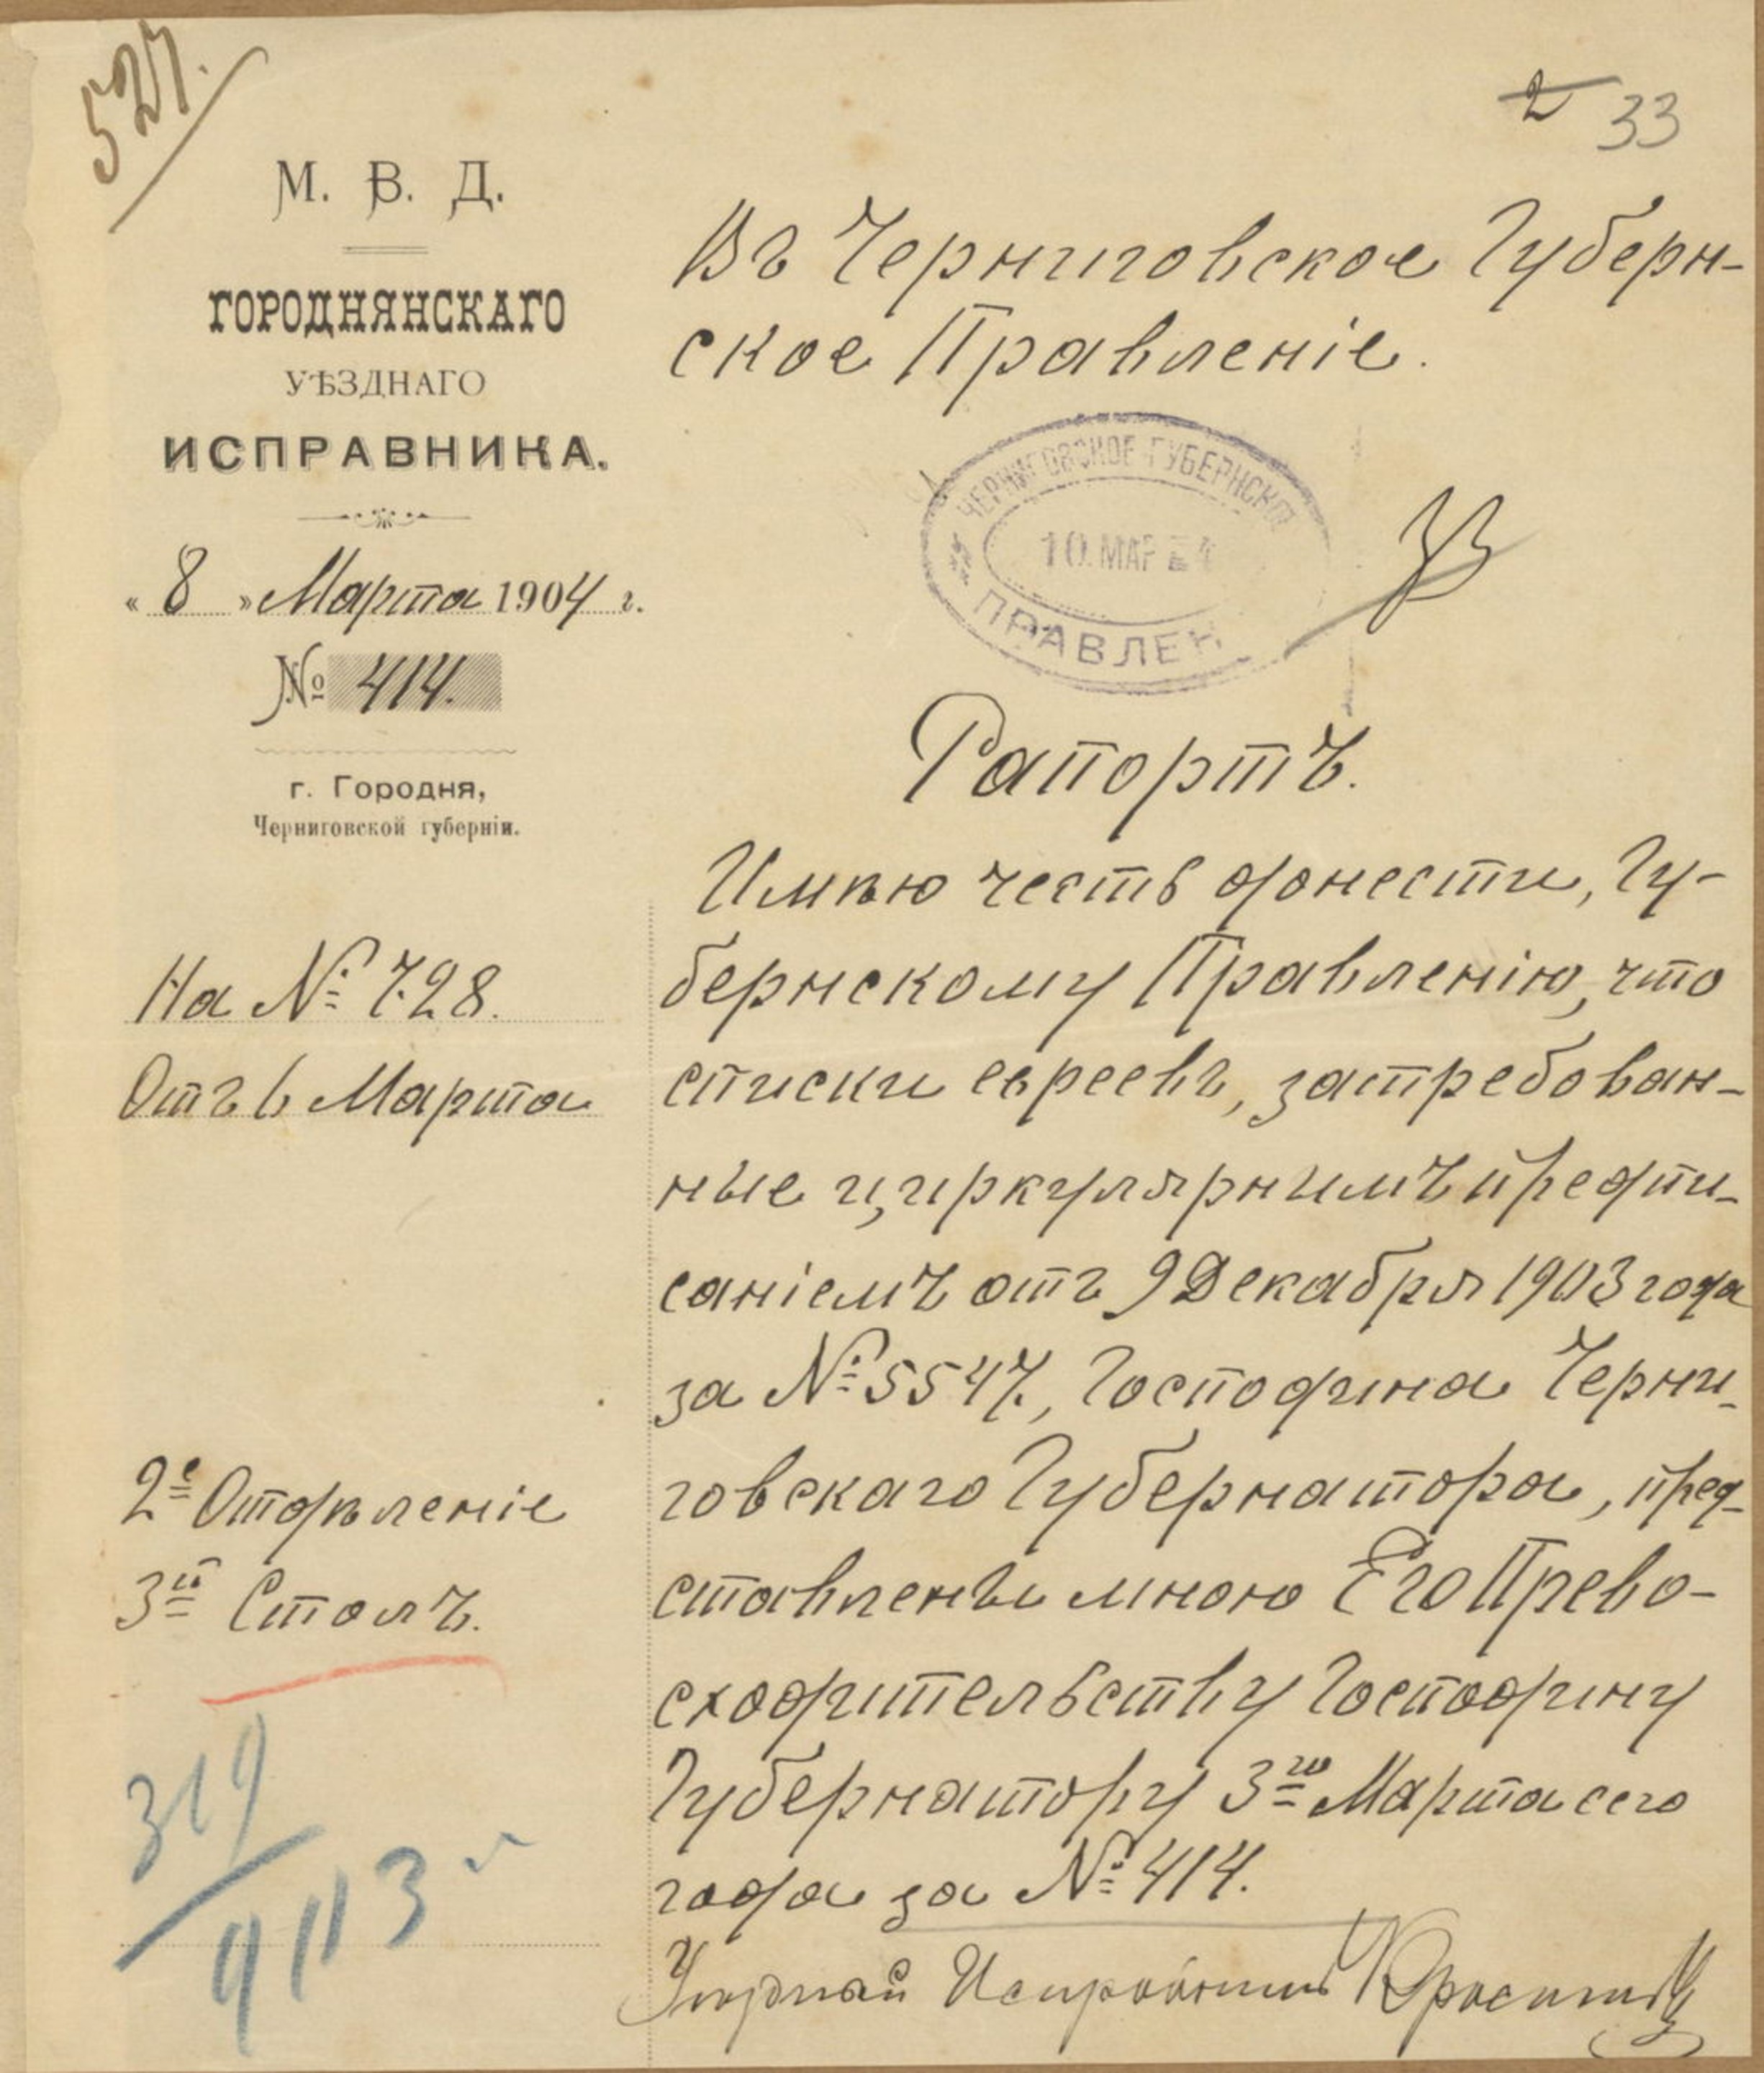 527.
2 33
М. В. Д.
ГОРОДНЯНСКАГО
УѢЗДНАГО
ИСПРАВНИКА.
« 8 » Марта 1904 г.
№ 414.
г. Городня,
Черниговской губерніи.
На № 728.
Отъ 6 Марта
2е Отдѣленіе
3й Столъ.
319
9 III 3
Въ Черниговское Губерн-
ское Правленіе.
ЧЕРНИГОВСКОЕ ГУБЕРНСКОЕ
10. МАР 4
ПРАВЛЕН
Рапортъ.
Имѣю честь донести, Гу-
бернскому Правленію, что
списки евреевъ, затребован-
ные циркулярнымъ предпи-
саніемъ отъ 9 Декабря 1903 года
за № 5547, Господина Черни-
говскаго Губернатора, пред-
ставлены мною Его Прево-
сходительству Господину
Губернатору 3го Марта сего
года за № 414.
Уѣздный Исправникъ